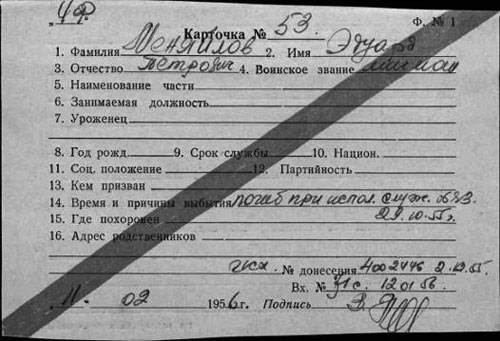 ЧФ Ф. № 1
Карточка № 53.
1. Фамилия Меняйлов 2. Имя Эдуард
3. Отчество Петрович 4. Воинское звание
5. Наименование части
6. Занимаемая должность
7. Уроженец
8. Год рожд. 9. Срок службы 10. Национ.
11. Соц. положение 12. Партийность
13. Кем призван
14. Время и причины выбытия погиб при испол. служ. обяз.
15. Где похоронен 29.10.55г.
16. Адрес родственников
№ донесения 4002446 2.12.55.
Вх. № 12.01.56.
11. 02 1956 г. Подпись